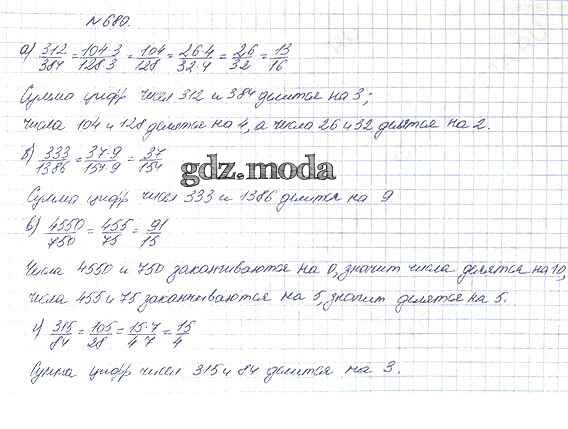 №680.
а) 312/384 = 104·3/128·3 = 104/128 = 26·4/32·4 = 26/32 = 13/16
Сумма цифр чисел 312 и 384 делится на 3;
числа 104 и 128 делятся на 4, а числа 26 и 32 делятся на 2.
б) 333/1386 = 37·9/154·9 = 37/154
gdz.moda
Сумма цифр чисел 333 и 1386 делится на 9
в) 4550/750 = 455/75 = 91/15
Числа 4550 и 750 заканчиваются на 0, значит числа делятся на 10,
числа 455 и 75 заканчиваются на 5, значит делятся на 5.
г) 315/84 = 105/28 = 15·7/4·7 = 15/4
Сумма цифр чисел 315 и 84 делится на 3.